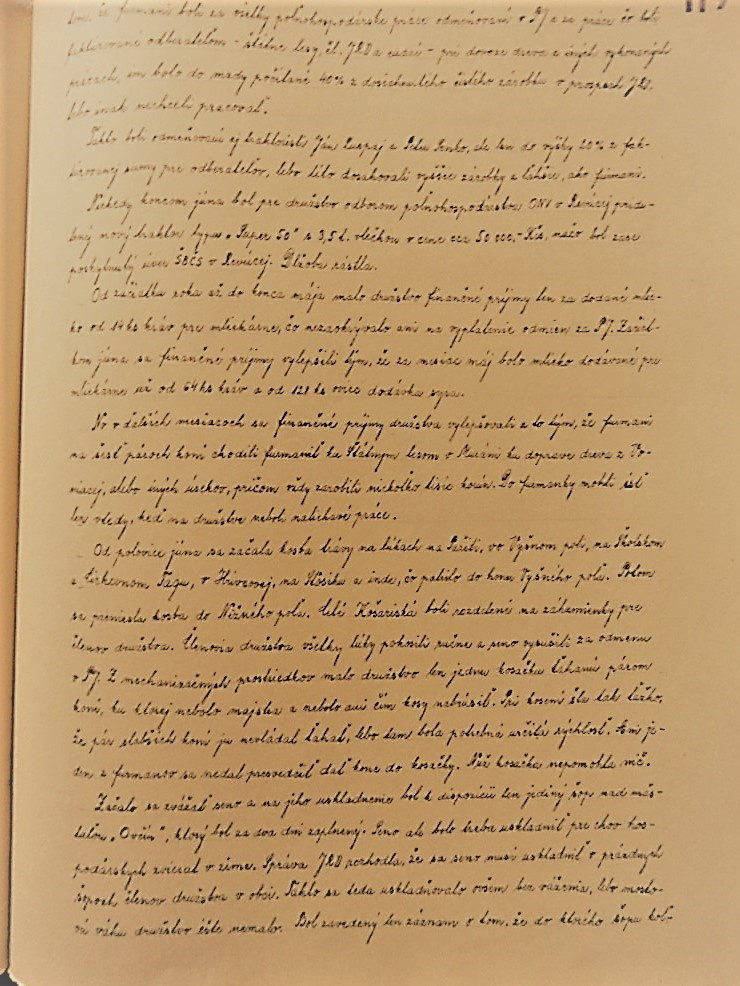 tom, že furmani boli za všetky poľnohospodárske práce odmeňovaní v PJ a za práce čo boli
fakturované odberateľom - štátne lesy, čl. JRD a cudzí - pri dovoze dreva a iných vykonaných
prácach, im bolo do mzdy počítané 40% z dosiahnutého čistého zárobku v prospech JRD,
lebo inak nechceli pracovať.
Takto boli odmeňovaní aj traktoristi Ján a Petro, ale len do výšky 20% z fak-
turovanej sumy pre odberateľov, lebo títo dosahovali vyššie zárobky a ľahšie, ako furmani.
Niekedy koncom júna bol pre družstvo odborom poľnohospodárstva ONV v Revúcej pride-
lený nový traktor typu „Super 50" s 3,5 t. vlečkou v cene cca 50 000,- Kčs, načo bol zase
poskytnutý úver ŠBČS v Revúcej. Dlžoba rástla.
Od začiatku roka až do konca mája malo družstvo finančné príjmy len za dodané mlie-
ko od 14 ks kráv pre mliekárne, čo nezaokrývalo ani na vyplatenie odmien za PJ. Začiat-
kom júna sa finančné príjmy vylepšili tým, že za mesiac máj bolo mlieko dodávané pre
mliekárne už od 64 ks kráv a od 128 ks oviec dodávka syra.
No v ďalších mesiacoch sa finančné príjmy družstva vylepšovali a to tým, že furmani
na šesť pároch koní chodili furmaniť ku Štátnym lesom v Muráni ku doprave dreva z Vo-
niacej, alebo iných úsekov, pričom vždy zarobili niekoľko tisíc korún. Do furmanky mohli ísť
len vtedy, keď na družstve neboli naliehavé práce.
Od polovice júna sa začala kosba trávy na lúkach na Pažiti, vo Vyšnom poli, na Školskom
a Cirkevnom Tágu, v Hávrovej, na Stôsiku a inde, čo patrilo do honu Vyšného poľa. Potom
sa preniesla kosba do Nižného poľa. Celé Košariská boli rozdelené na záhumienky pre
členov družstva. Členovia družstva všetky lúky pokosili ručne a seno vysušili za odmenu
v PJ. Z mechanizačných prostriedkov malo družstvo len jednu kosačku ťahanú párom
koní, ku ktorej nebolo majstra a nebolo ani čím kosy nabrúsiť. Pri kosení šla tak ťažko,
že pár slabších koní ju nevládal ťahať, lebo tam bola potrebná určitá rýchlosť. Ani je-
den z furmanov sa nedal presvedčiť dať kone do kosačky. Nuž kosačka nepomohla nič.
Začalo sa zvážať seno a na jeho uskladnenie bol k dispozícii len jediný šop nad maš-
taľou „Ovčín", ktorý bol za dva dni zaplnený. Seno ale bolo treba uskladniť pre chov hos-
podárskych zvierat v zime. Správa JRD rozhodla, že sa seno musí uskladniť v prázdnych
šopoch členov družstva v obci. Takto sa teda uskladňovalo ovšem bez váženia, lebo mosto-
vú váhu družstvo ešte nemalo. Bol zavedený len záznam o tom, že do ktorého šopu koľ-